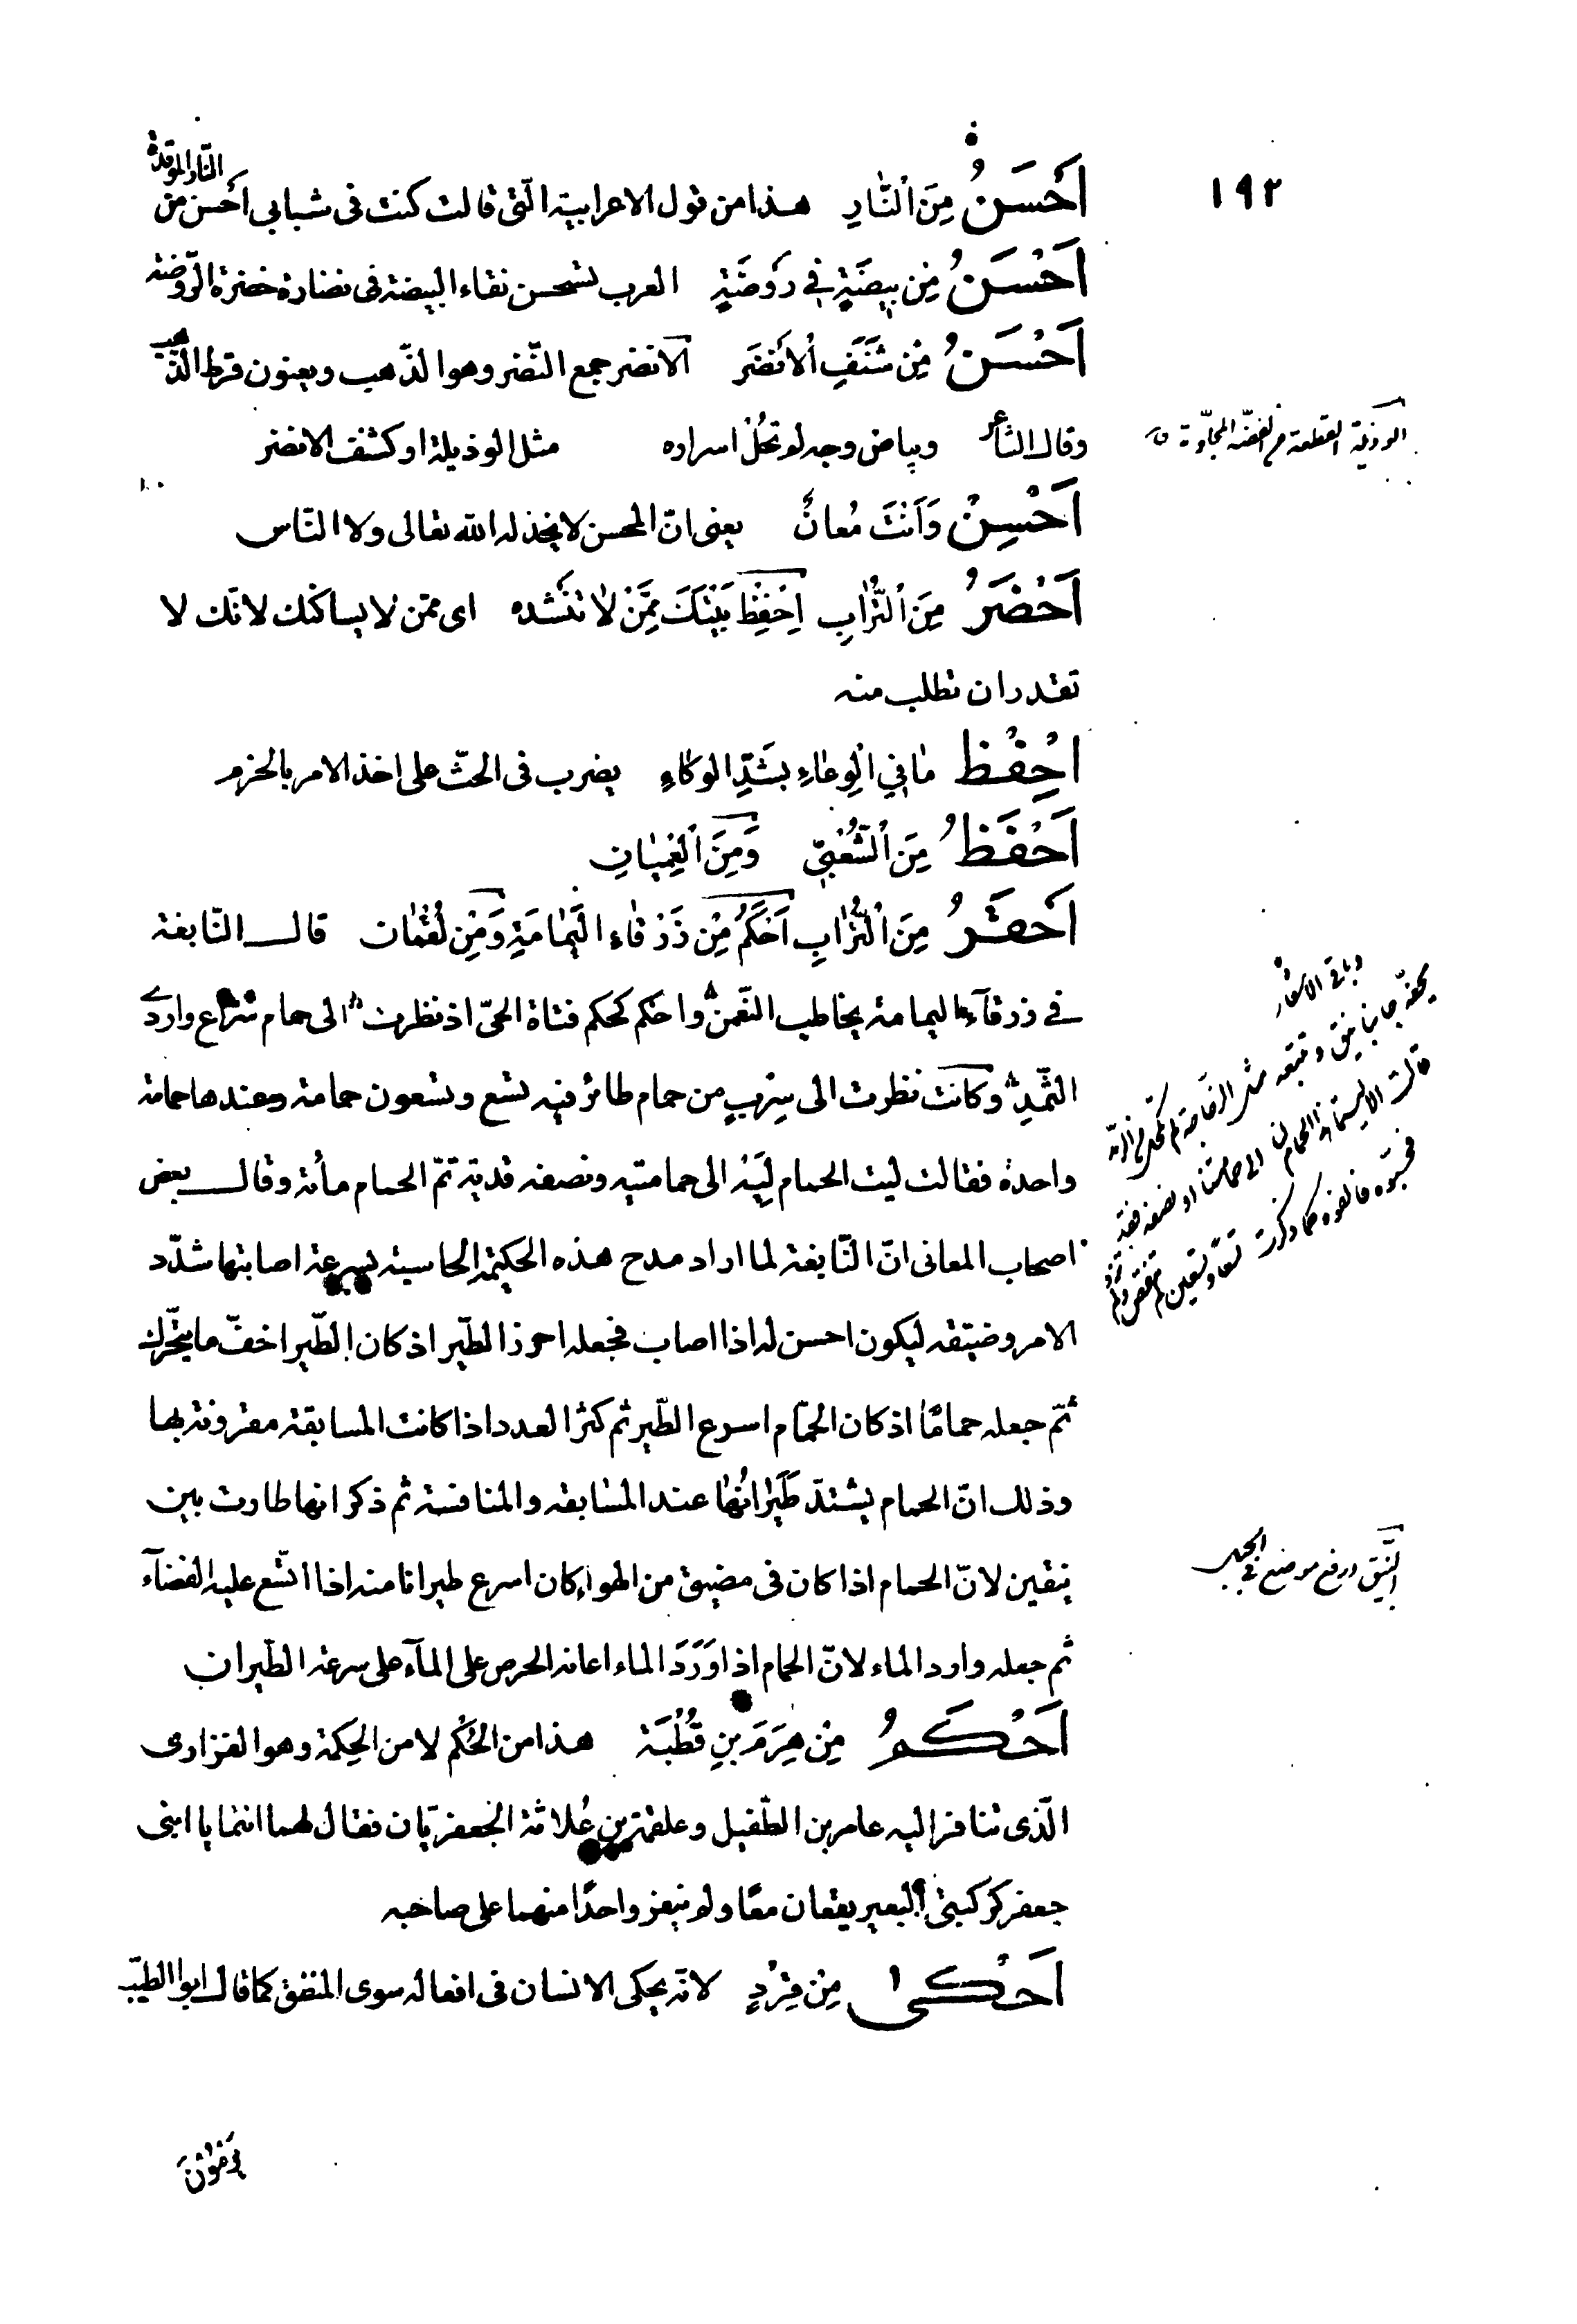 ١٩٢
اَحْسَنُ مِنَ اْلنّٰارِ هذا من قول الاعرابية الّتى قالت كنت فى شبابى أحسن من النّار الموقدة
اَحْسَنُ مِنْ بيضَةٍ فِي رَوْضَةٍ العرب تستحسن نقاء البيضة فى نضارة خضرة الرّوضة
اَحْسَنُ مِنْ شَنَفِ اْلاَنْضَر الانضر جمع النّضر وهو الذّهب ويعنون قرط الذّهب
وقال الشاعر وبياض وجه لو تحُلْ اسراره مثل الوذيلة او كشنف الانضر
الوذيلة القطعة من الفضّة المجلّوة
اَحْسِنْ وَاَنْتَ مُعانٌ يعنى انّ المحسن لا يخذله الله تعالى ولا النّاس
اَحْضَرُ مِنَ اْلتُّرٰابِ اِحْفِظْ بَيْتَكَ مِمَّنْ لاٰ تنْشده اى ممّن لا يساكنك لانّك لا
تقدر ان تطلب منه
اِحْفِظْ مٰا فِي اْلوِعٰاءِ بشَدِّ الوكٰاءِ يضرب فى الحثّ على اخذ الامر بالحزم
اَحْفَظُ مِنَ اْلشَّعْبِيّ وَمِنَ اْلعِمْيٰانِ
اَحْقَرُ مِنَ اْلتُّرٰابِ اَحْكَمُ مِنْ زَرْقٰاءِ اليَمٰامَةِ وَمِنْ لُقْمٰان قال النّابغة
فى زرقآء اليمامة يخاطب النّعمن واحكم كحكم فتاة الحىّ اذ نظرت الى حمام شراع واردى
الثّمدِ وكانت نظرت الى سِرْبٍ من حمام طائر فيه تسع وتسعون حمامة وعندها حمامة
واحدة فقالت ليت الحمام لِيَهْ الى حمامتيه ونصفه قديه تمّ الحمام مأئة وقال بعض
اصحاب المعانى انّ النّابغة لما اراد مدح هذه الحكيمة الحاسبة بسرعة اصابتها شدّد
الامر وضيّقه ليكون احسن له اذا اصاب فجعله احرز الطّير اذ كان الطّير اخفّ ما يتحّرك
ثمّ جعله حمامًا اذ كان الحمّام اسرع الطّير ثم كثر العدد اذا كانت المسابقة مقرونة بها
وذلك انّ الحمام يشتدّ طَيَرٰانُهٰا عند المسٰابقة والمنافسة ثم ذكر انها طارت بين
نيقين لانّ الحمام اذا كان فى مضيق من الهواء كان اسرع طيرانا منه اذا اتّسع عليه الفضآء
ثم جعله وارد الماء لانّ الحمام اذا وَرَدَ الماء اعانه الحرص على المآء على سرعة الطّيران
وباقى الاشعار
يحفّه جانبا نيق وتتبعه مثل الزجاجة لم تكحل من الرمد
قالت الا ليتما هذا الحمام لنا الى حمامتنا او نصفه فقد
فحسّبوه فالفوه كما ذكرت تسعا وتسعين لم تنقص ولم تزد
النّيق ارفع موضع فى الجبل
اَحْكَمُ مِنْ هِرَمَ بنِ قُطْبَة هذا من الحُكْم لا من الحِكمة وهو الفزارى
الّذى تنافر اليه عامر بن الطّفيل وعلقمة بن عُلاثة الجعفريّان فقال لهما انتما يا ابنى
جعفر كركبتى البعير يقعان معًا ولم ينفر واحدًا منهما على صاحبه
اَحْكىٰ مِنْ قِرْدٍ لانّه يحكى الانسان فى افعاله سوى المنطق كما قال ابو الطيّب